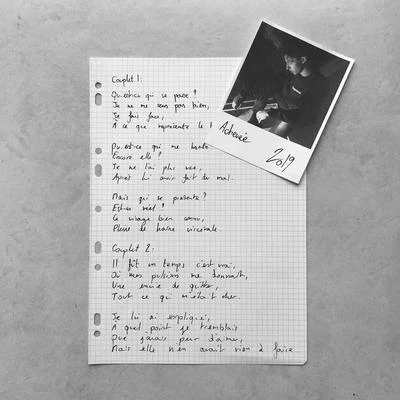 Couplet 1:
Qu'est-ce qui se passe ?
Je ne me sens pas bien,
Je fais face,
À ce que représente le
Qu'est-ce qui me hante
Encore elle ?
Je ne l'ai plus vue,
Après lui avoir fait du mal.
Mais qui se présente ?
Est-ce réel ?
Ce visage bien connu,
Pleine de haine viscérale.
Couplet 2:
Il fût un temps c'est vrai,
Où mes pulsions me donnait,
Une envie de quitter,
Tout ce qui m'était cher.
Je lui ai expliqué,
À quel point je tremblais
Que j'avais peur d'aimer,
Mais elle n'en avait rien à faire
Achevée
2019